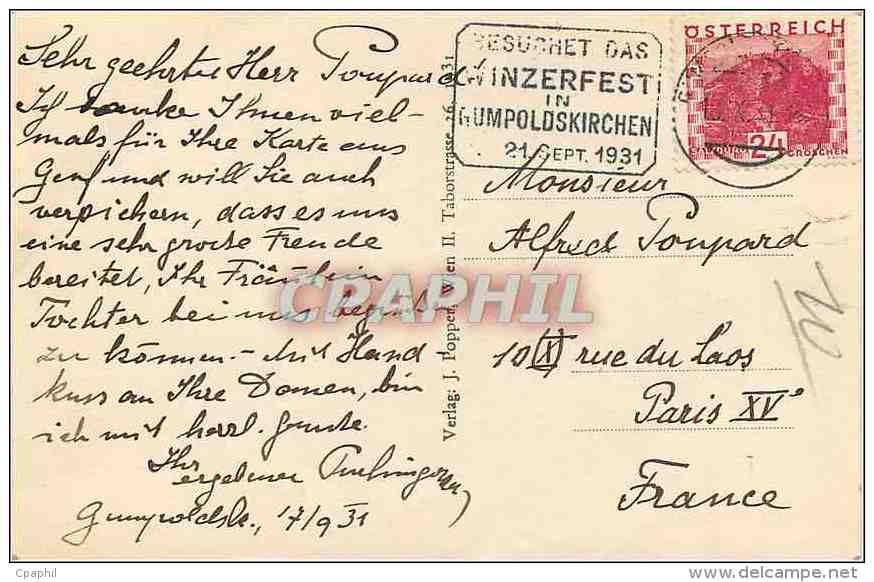 Sehr geehrter Herr Poupard
Ich danke Ihnen viel-
mals für Ihre Karte aus
Genf und will Sie auch
versichern, dass es uns
eine sehr grosse Freude
bereitet, Ihr Fräulein
Tochter bei uns
zu können – Mit Hand
kuss an Ihre Damen, bin
ich mit herzl.
Ihr
ergebener
Gumpoldsk., 17/9 31
Verlag: J. Popper, Wien II. Taborstrasse
BESUCHET DAS
WINZERFEST
IN
GUMPOLDSKIRCHEN
21. SEPT. 1931
ÖSTERREICH
24
GROSCHEN
Monsieur
Alfred Poupard
10 (X) rue du Laos
Paris XVe
France
CPAPHIL
© Cpaphil
delcampe.net